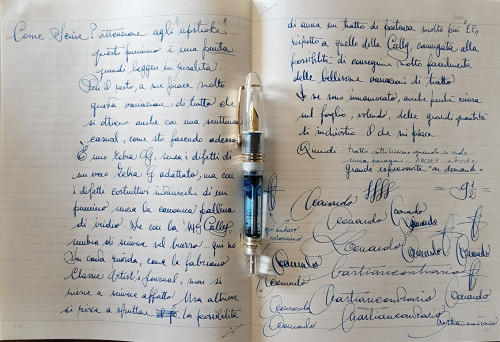 Come Scrive? attenzione agli "upstroke"...
questo pennino è una punta
quindi leggera in risalita.
Per il resto, a me piace molto
questa variazione di tratto che
si ottiene anche con una scrittura
casual, come sto facendo adesso.
È uno Zebra G, senza i difetti di
un vero Zebra G adattato, ma con
i difetti costruttivi intrinseci di un
pennino senza la canonica pallina
di iridio. Se con la Cally
sembra di scrivere sul burro... qui no.
Su carta ruvida, come la Fabriano
Classic Artist's Journal, non si
riesce a scrivere affatto. Ma altrove
si riesce a sfruttare la possibilità
di avere un tratto di partenza molto più
rispetto a quello della Cally, coniugata alla
possibilità di conseguire molto facilmente
delle bellissime variazioni di tratto.
se sono innamorato, anche perché riversa
sul foglio, volendo, delle grandi quantità
di inchiostro il che mi piace.
Quindi: tratto sottilissimo quando si vede
senza paragoni
grande espressività "on demand".
= 9 1/2
qui andavo
velocissimo
Leonardo
Leonardo
Leonardo
Leonardo
Leonardo
Leonardo
Leonardo
Leonardo
Bastiancontrario
Leonardo
Bastiancontrario
Leonardo
Leonardo
Bastiancontrario
Bastiancontrario